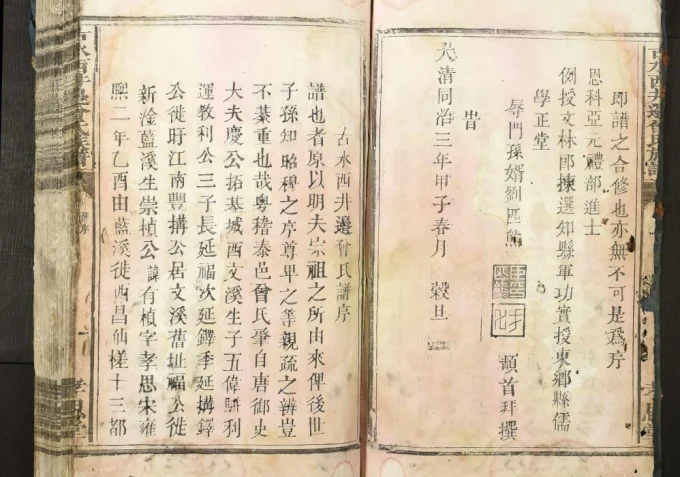 即譜之合修也亦無不可是爲序
恩科亞元禮部進士
例授文林郎揀選知縣軍功實授東鄉縣儒
學正堂
辱門孫婿劉匹熊
頓首拜撰
旹
大清同治三年甲子春月 穀旦
古水西井邊曾氏譜序
譜也者原以明夫崇祖之所由來俾後世
子孫知昭穆之序尊卑之等親疏之辨豈
不綦重也哉粵稽泰邑曾氏肇自唐御史
大夫慶公拓基城西文溪生子五偉駢利
運教利公三子長延福次延鐸季延搆鐸
公徙盱江南豐搆公居文溪舊址福公徙
新淦藍溪生崇楨公諱有楨字孝思宋雍
熙二年乙酉由藍溪徙西昌仙槎十三都